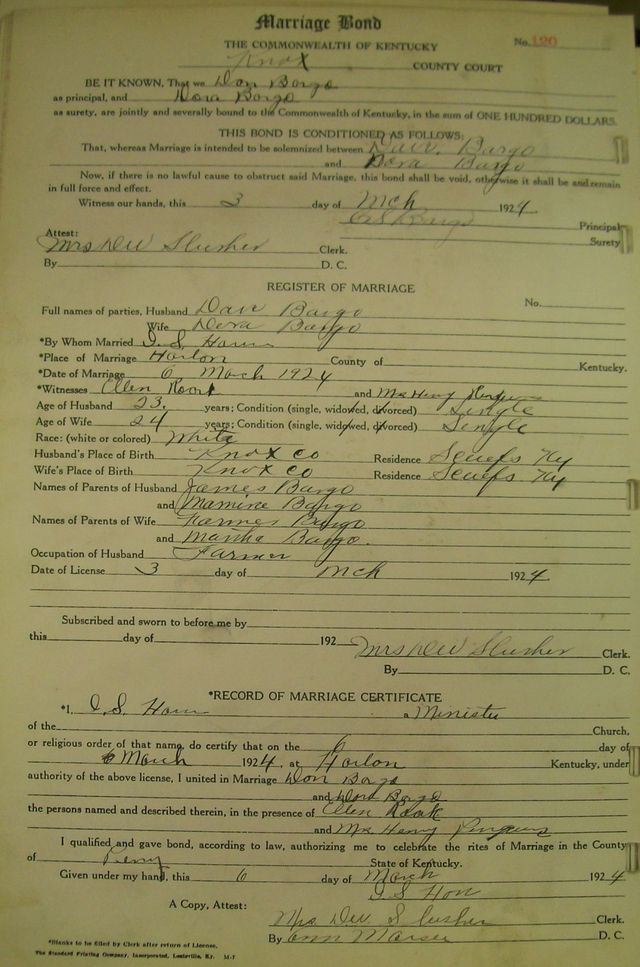 Marriage Bond
THE COMMONWEALTH OF KENTUCKY No. 120
Knox COUNTY COURT
BE IT KNOWN, That we Don Bargo
as principal, and Dora Bargo
as surety, are jointly and severally bound to the Commonwealth of Kentucky, in the sum of ONE HUNDRED DOLLARS.
THIS BOND IS CONDITIONED AS FOLLOWS:
That, whereas Marriage is intended to be solemnized between Bargo
and Dora Bargo
Now, if there is no lawful cause to obstruct said Marriage, this bond shall be void, otherwise it shall be and remain
in full force and effect.
Witness our hands, this 3 day of Mch 1924
Bargo Principal
Attest: Surety
Mrs Slusher Clerk.
By D. C.
REGISTER OF MARRIAGE
Full names of parties, Husband Bargo No.
Wife Dora Bargo
*By Whom Married
*Place of Marriage Harlan County of Kentucky.
*Date of Marriage 6 March 1924
*Witnesses Ellen and Mrs Henry
Age of Husband 23. years; Condition (single, widowed, divorced) Single
Age of Wife 24 years; Condition (single, widowed, divorced) Single
Race: (white or colored) White
Husband's Place of Birth Knox Co Residence Ky
Wife's Place of Birth Knox Co Residence Ky
Names of Parents of Husband James Bargo
and Bargo
Names of Parents of Wife Bargo
and Martha Bargo.
Occupation of Husband Farmer
Date of License 3 day of Mch 1924.
Subscribed and sworn to before me by
this day of 192 Mrs Slusher Clerk.
By D. C.
*RECORD OF MARRIAGE CERTIFICATE
*I, a Minister
of the Church,
or religious order of that name, do certify that on the 6 day of
March 1924, at Harlan Kentucky, under
authority of the above license, I united in Marriage Don Bargo
and Dora Bargo
the persons named and described therein, in the presence of Ellen
and Mrs Henry
I qualified and gave bond, according to law, authorizing me to celebrate the rites of Marriage in the County
of Perry State of Kentucky.
Given under my hand, this 6 day of March 1924
A Copy, Attest:
Mrs. Slusher Clerk.
By D. C.
*Blanks to be filled by Clerk after return of License.
The Standard Printing Company, Incorporated, Louisville, Ky. M-7